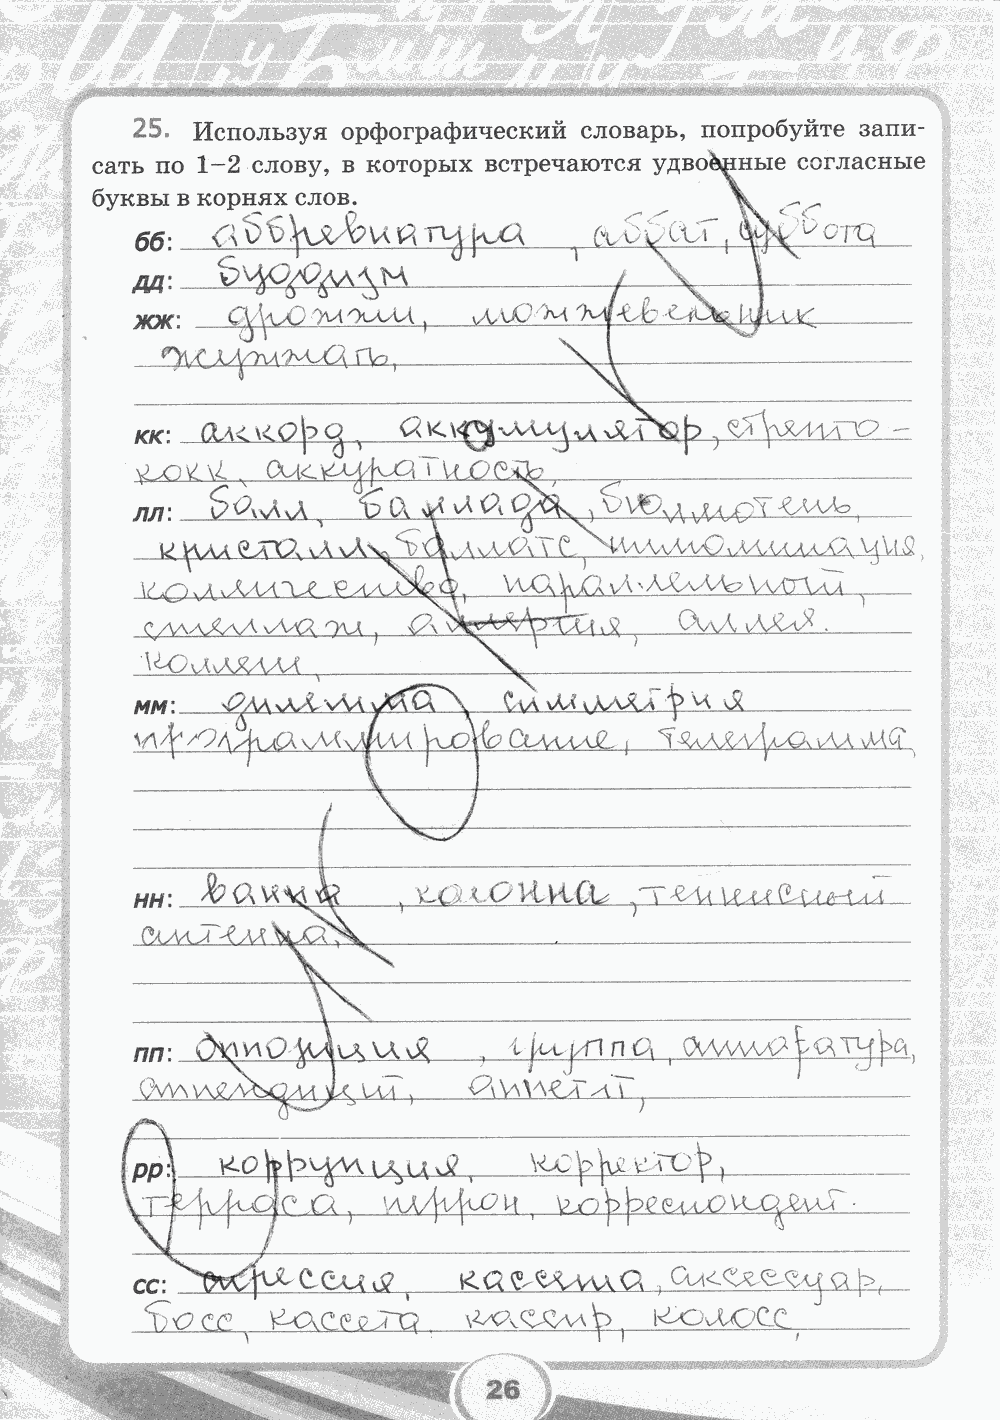 25. Используя орфографический словарь, попробуйте запи-
сать по 1–2 слову, в которых встречаются удвоенные согласные
буквы в корнях слов.
бб: аббревиатура, аббат, суббота
дд: буддизм
жж: дрожжи, можжевельник
жужжать,
кк: аккорд, аккумулятор, стрепто-
кокк, аккуратность,
лл: балл, баллада, бюллютень,
кристалл, баллатс, иллюминация,
колличество, параллельный,
стеллаж, аллергия, аллея.
коллеги,
мм: дилемма симметрия
программирование, телеграмма,
нн: ванна, колонна, теннисный
антенна,
пп: оппозиция, группа, аппаратура,
аппендицит, аппетит,
рр: коррупция, корректор,
терраса, перрон, корреспондент.
сс: агрессия, кассета, аксессуар,
босс, кассета. кассир, колосс,
26